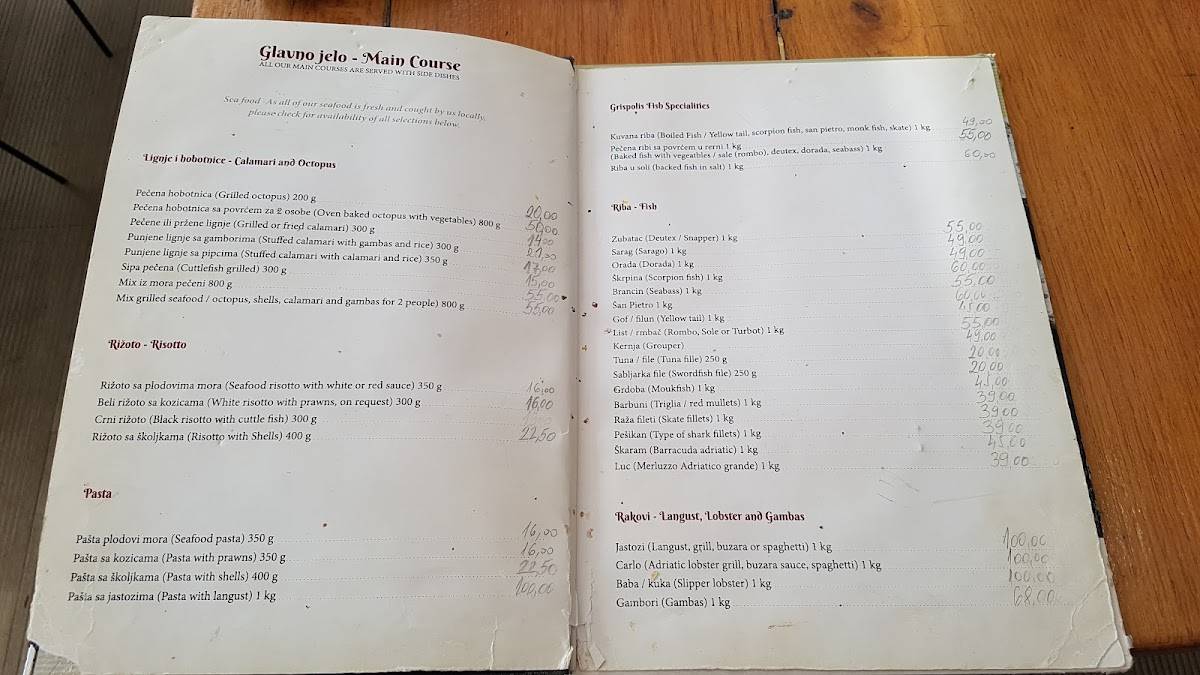 Glavno jelo - Main Course
ALL OUR MAIN COURSES ARE SERVED WITH SIDE DISHES
Sea food - As all of our seafood is fresh and cought by us locally,
please check for availability of all selections below.
Lignje i hobotnice - Calamari and Octopus
Pečena hobotnica (Grilled octopus) 200 g 20,00
Pečena hobotnica sa povrćem za 2 osobe (Oven baked octopus with vegetables) 800 g 50,00
Pečene ili pržene lignje (Grilled or fried calamari) 300 g
Punjene lignje sa gamborima (Stuffed calamari with gambas and rice) 300 g
Punjene lignje sa pipcima (Stuffed calamari with calamari and rice) 350 g 17,00
Sipa pečena (Cuttlefish grilled) 300 g 15,00
Mix iz mora pečeni 800 g 55,00
Mix grilled seafood / octopus, shells, calamari and gambas for 2 people) 800 g 55,00
Rižoto - Risotto
Rižoto sa plodovima mora (Seafood risotto with white or red sauce) 350 g 16,00
Beli rižoto sa kozicama (White risotto with prawns, on request) 300 g 16,00
Crni rižoto (Black risotto with cuttle fish) 300 g
Rižoto sa školjkama (Risotto with Shells) 400 g 22,50
Pasta
Pašta plodovi mora (Seafood pasta) 350 g 16,00
Pašta sa kozicama (Pasta with prawns) 350 g 16,00
Pašta sa školjkama (Pasta with shells) 400 g 22,50
Pašta sa jastozima (Pasta with langust) 1 kg 100,00
Grispolis Fish Specialities
Kuvana riba (Boiled Fish / Yellow tail, scorpion fish, san pietro, monk fish, skate) 1 kg 49,00
Pečena ribi sa povrćem u rerni 1 kg 55,00
(Baked fish with vegeatbles / sale (rombo), deutex, dorada, seabass) 1 kg
Riba u soli (backed fish in salt) 1 kg 60,00
Riba - Fish
Zubatac (Deutex / Snapper) 1 kg 55,00
Sarag (Sarago) 1 kg 49,00
Orada (Dorada) 1 kg 49,00
Škrpina (Scorpion fish) 1 kg 60,00
Brancin (Seabass) 1 kg 55,00
San Pietro 1 kg 60,00
Gof / filun (Yellow tail) 1 kg 45,00
List / rmbač (Rombo, Sole or Turbot) 1 kg 55,00
Kernja (Grouper) 49,00
Tuna / file (Tuna fille) 250 g 20,00
Sabljarka file (Swordfish file) 250 g 20,00
Grdoba (Moukfish) 1 kg 45,00
Barbuni (Triglia / red mullets) 1 kg 39,00
Raža fileti (Skate fillets) 1 kg 39,00
Pešikan (Type of shark fillets) 1 kg 39,00
Škaram (Barracuda adriatic) 1 kg 45,00
Luc (Merluzzo Adriatico grande) 1 kg 39,00
Rakovi - Langust, Lobster and Gambas
Jastozi (Langust, grill, buzara or spaghetti) 1 kg 100,00
Carlo (Adriatic lobster grill, buzara sauce, spaghetti) 1 kg 100,00
Baba / kuka (Slipper lobster) 1 kg 100,00
Gambori (Gambas) 1 kg 68,00